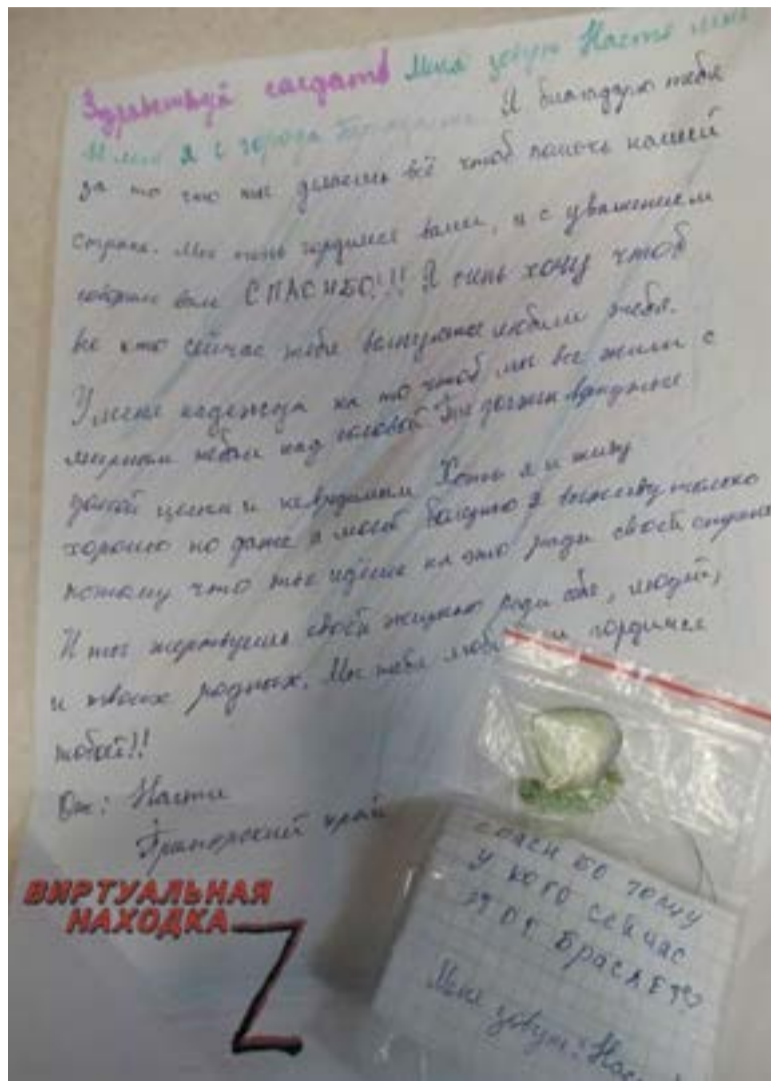 Здравствуй солдат Меня зовут Настя мне
я с города Я благодарю тебя
за то что ты делаешь всё чтоб помочь нашей
стране. Мы очень гордимся вами, и с уважением
говорим вам СПАСИБО!!! Я хочу чтоб
все кто сейчас тебя любили тебя.
У меня надежда на то чтоб мы все жили с
мирным небом над головой Ты должен вернуться
домой целым и невредимым Хоть я и живу
хорошо но даже я моей болезнью я только
потому что ты идёшь на это ради своей страны
И ты жертвуешь своей жизнью ради, людей,
и твоих родных. Мы тебя и гордимся
тобой!!
От: Насти
Приморский край
ВИРТУАЛЬНАЯ
НАХОДКА
Z
спаси бо тому
у кого сейчас
этот браслет
Меня зовут: